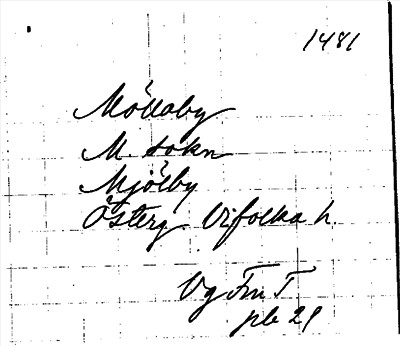 1481
Möllaby
M. sokn
Mjölby
Österg Vifolka h.
Vg Fm T
pb 29